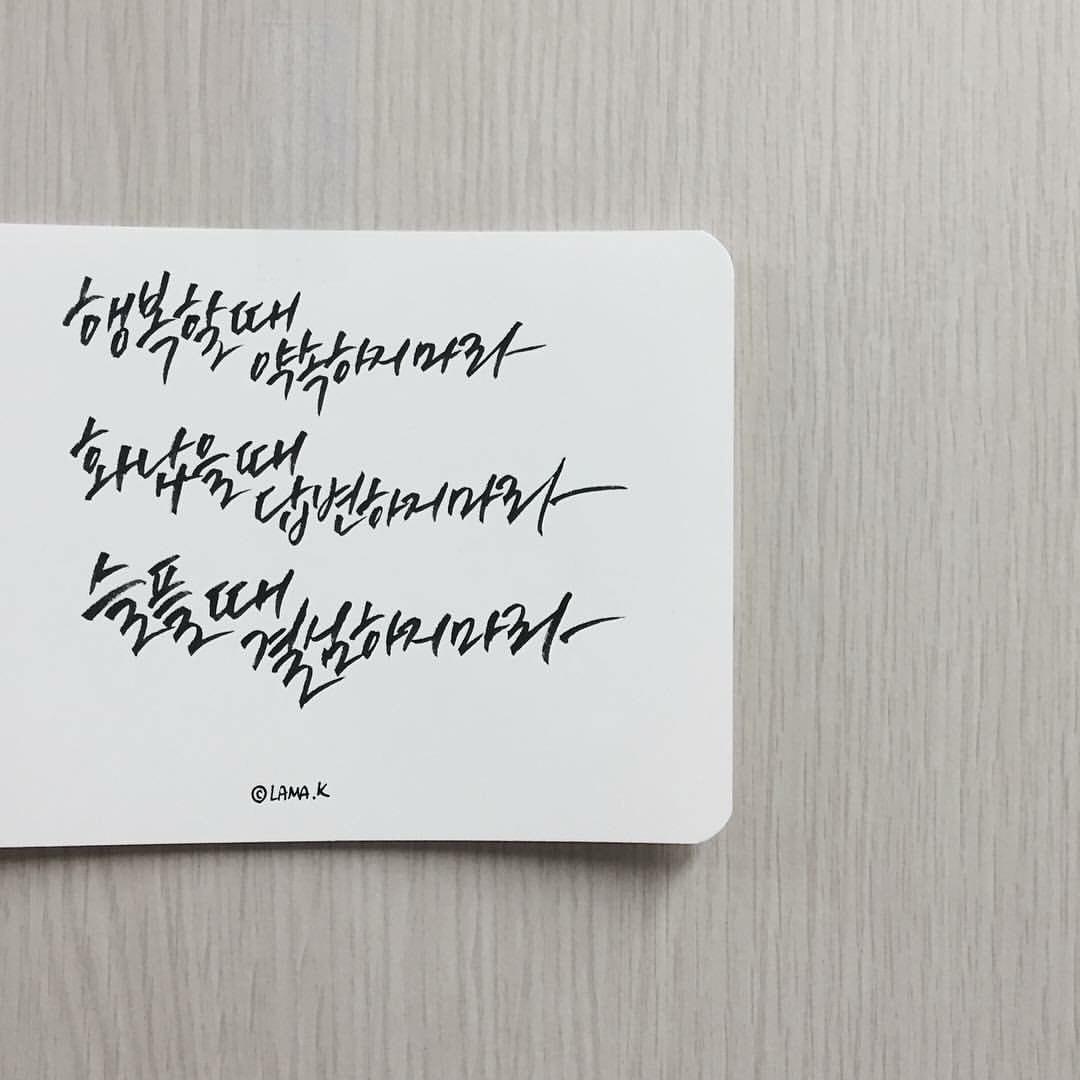 행복할때
약속하지마라
화났을때
답변하지마라
슬플때
결심하지마라
©LAMA.K